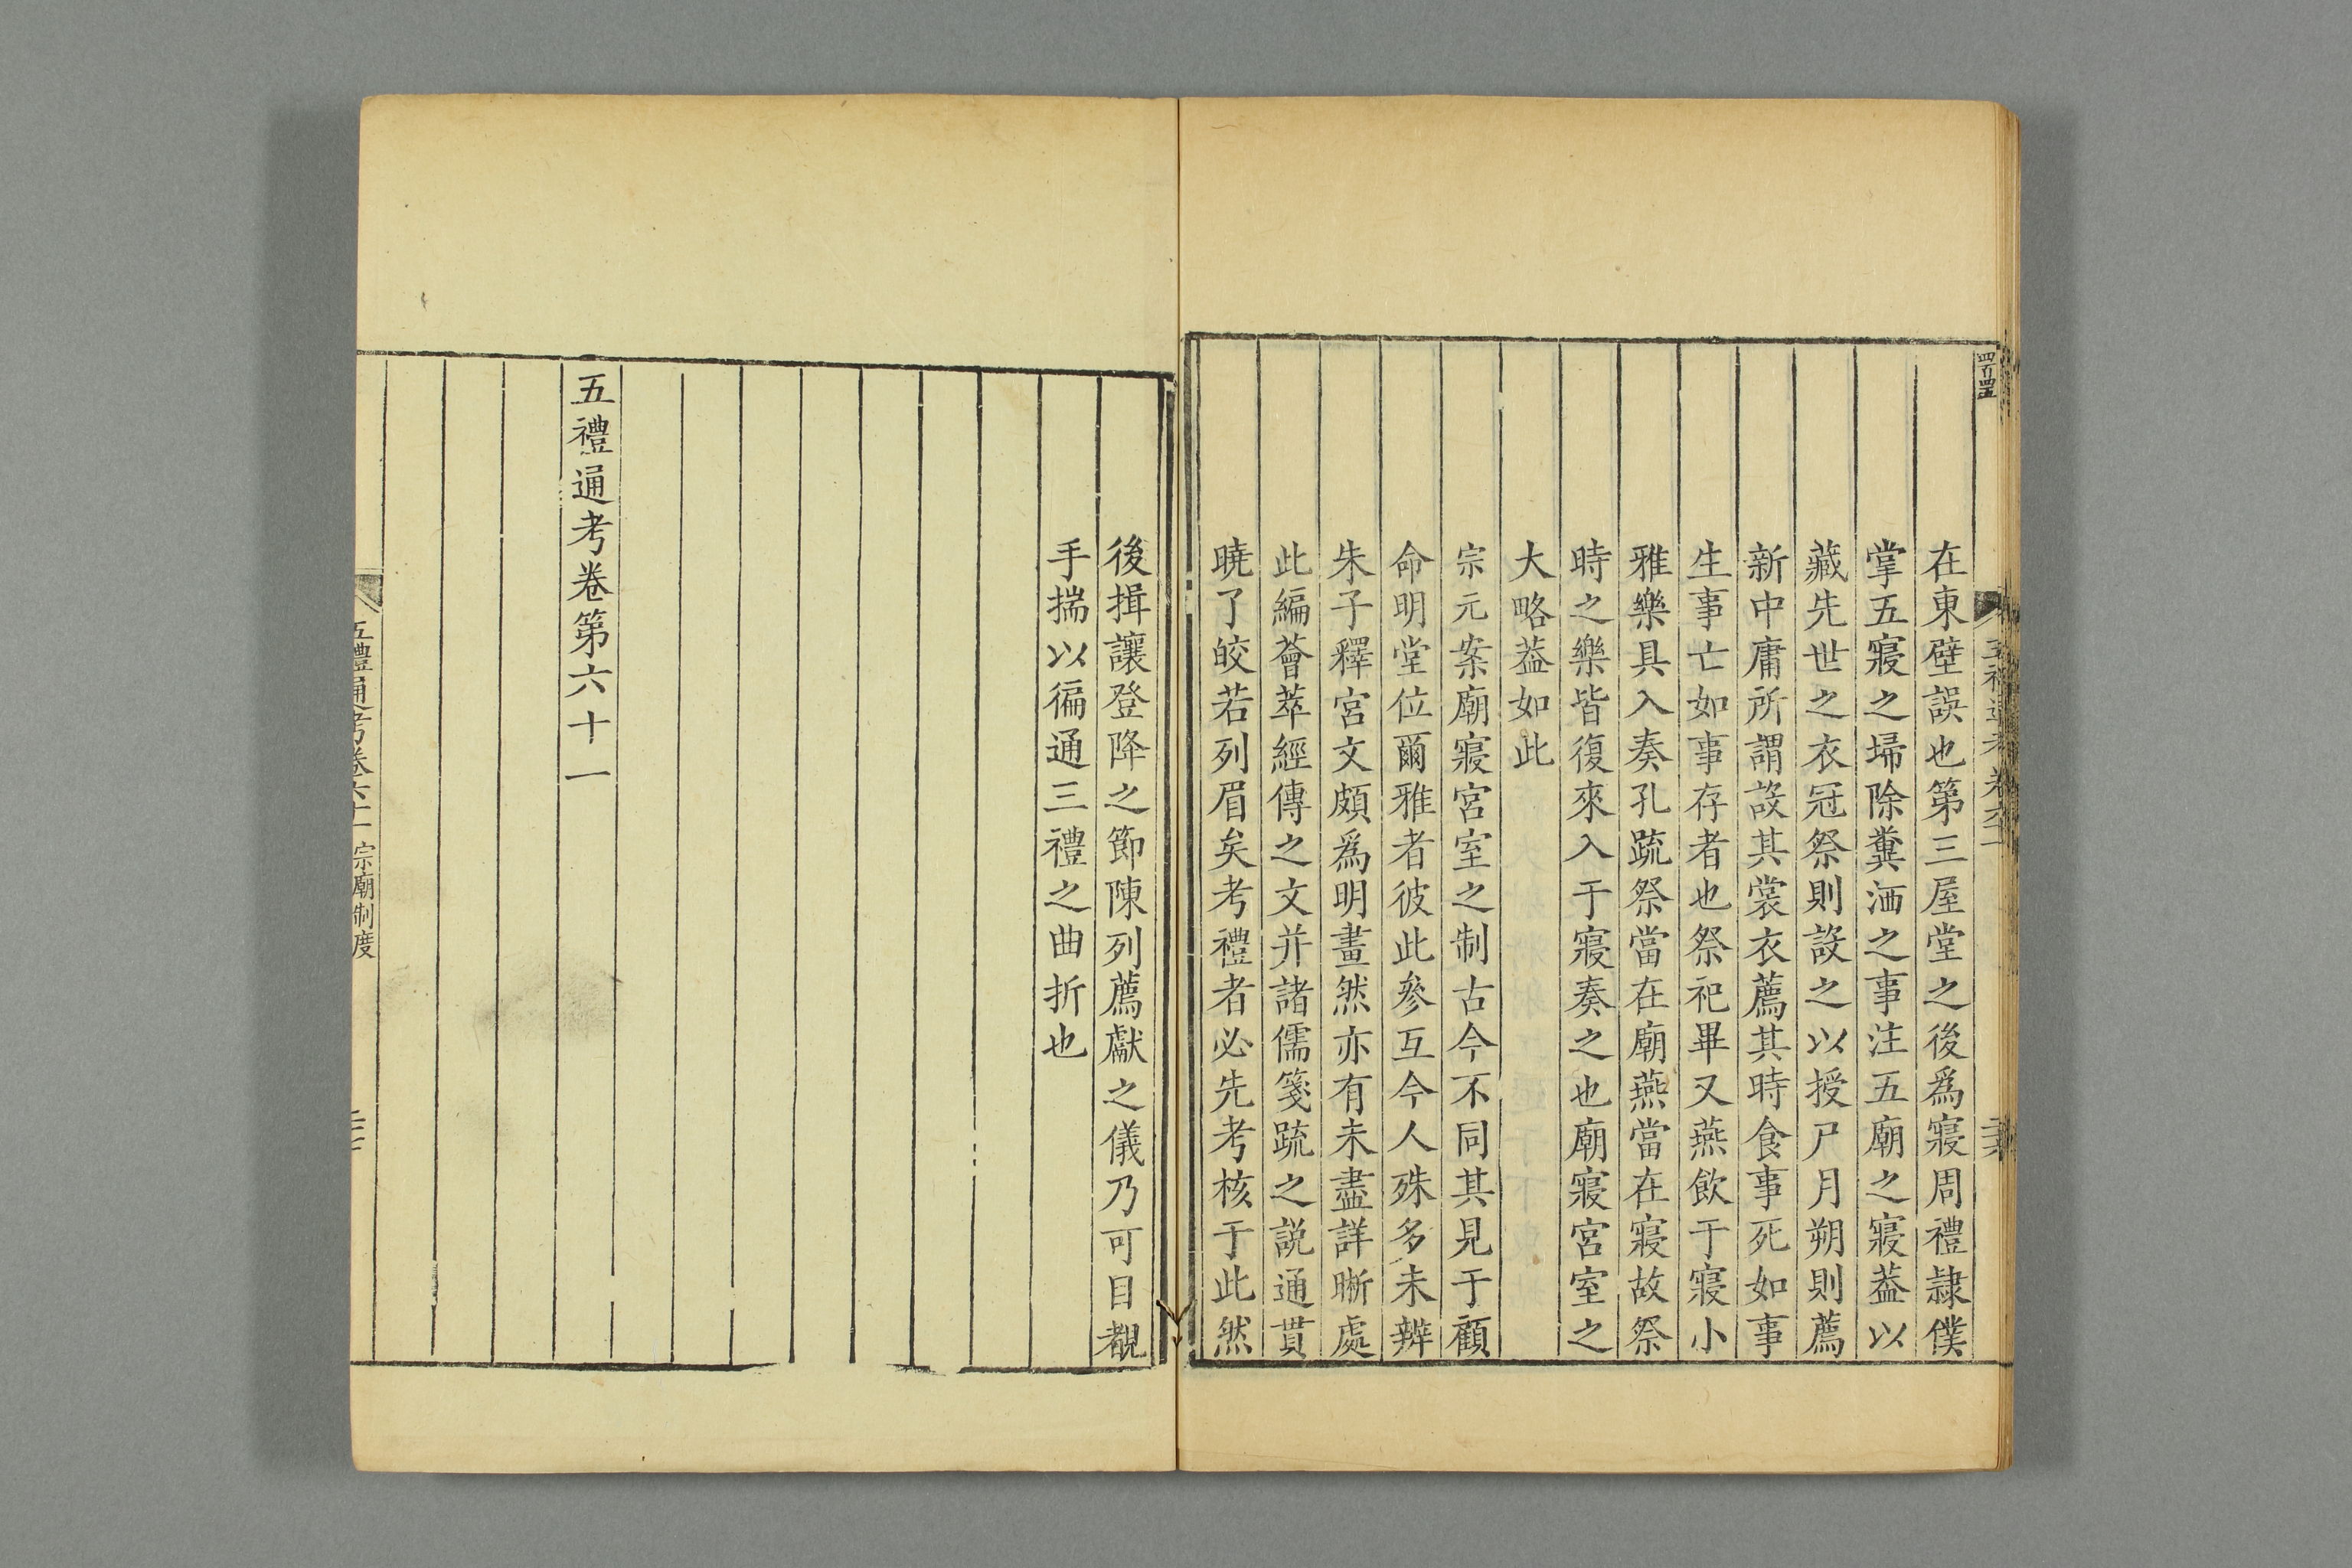 在東壁誤也第三屋堂之後為寢周禮隷僕
掌五寢之埽除糞洒之事注五廟之寢葢以
藏先世之衣冠祭則設之以授尸月朔則薦
新中庸所謂設其裳衣薦其時食事死如事
生事亡如事存者也祭祀畢又燕飲于寢小
雅樂具入奏孔疏祭當在廟燕當在寢故祭
時之樂皆復來入于寢奏之也廟寢宮室之
大略葢如此
宗元案廟寢宮室之制古今不同其見于顧
命明堂位爾雅者彼此參互今人殊多未辨
朱子釋宮文頗爲明畫然亦有未盡詳晰處
此編薈萃經傳之文并諸儒箋疏之說通貫
曉了皎若列眉矣考禮者必先考核于此然
後揖讓登降之節陳列薦獻之儀乃可目覩
手揣以徧通三禮之曲折也
五禮通考卷第六十一
五禮通考卷六十一 宗廟制度